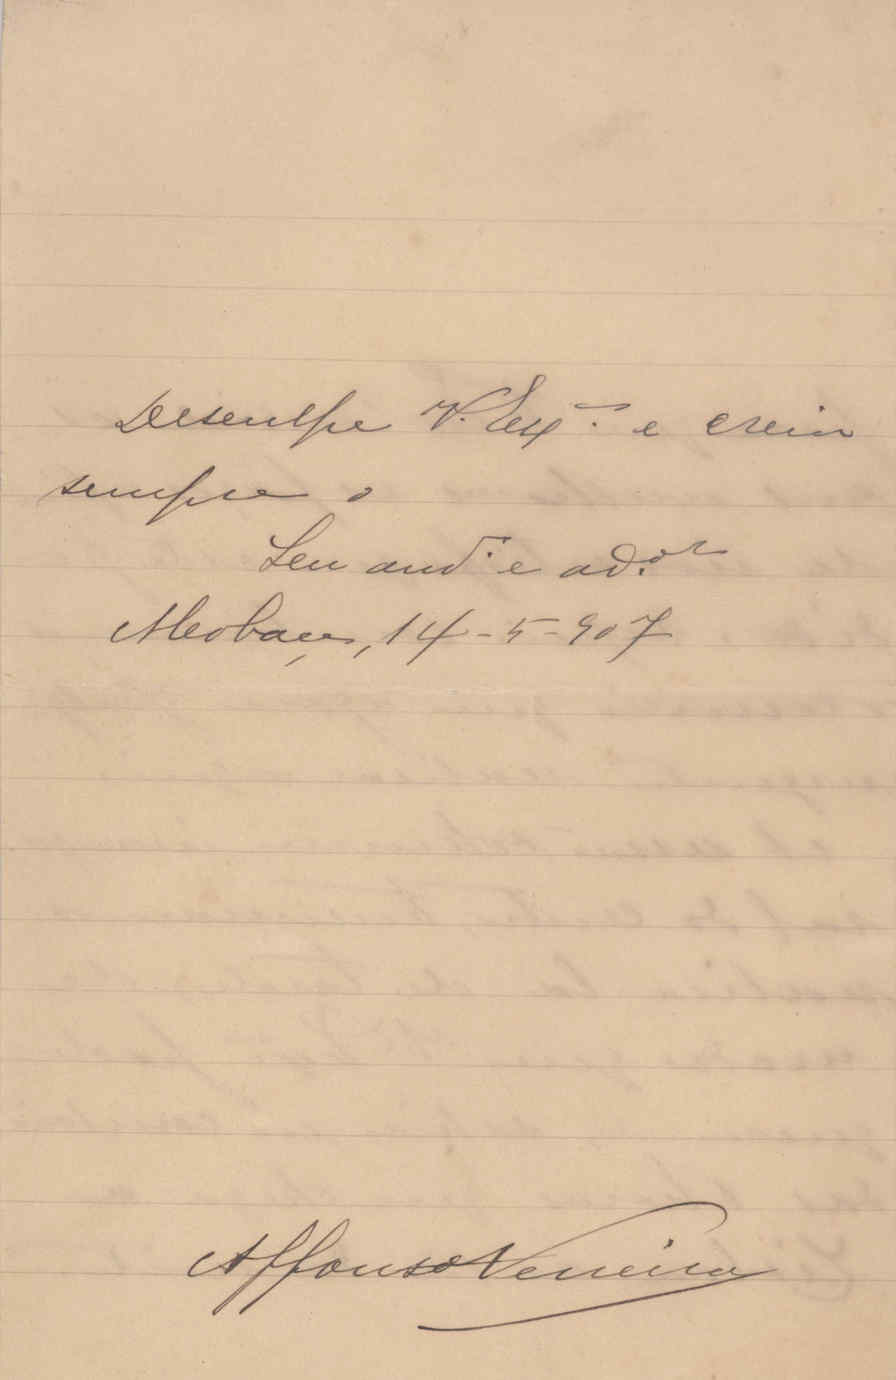 Desculpe V. Exª. e creia
sempre o
Seu amº. e ad.or
Alcobaça, 14-5-907
Affonso Ferreira